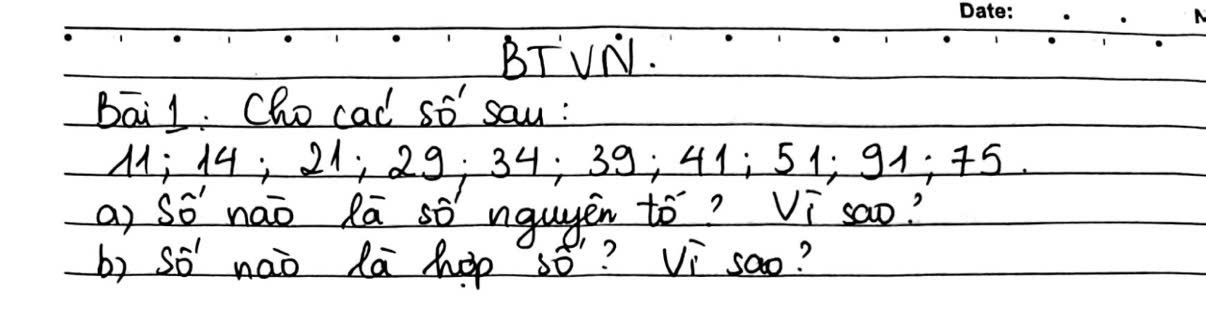 Date: . . N
BTVN.
Bài 1: Cho các số sau:
11; 14; 21; 29; 34; 39; 41; 51; 91; 75.
a) Số nào là số nguyên tố? Vì sao?
b) Số nào là hợp số? Vì sao?